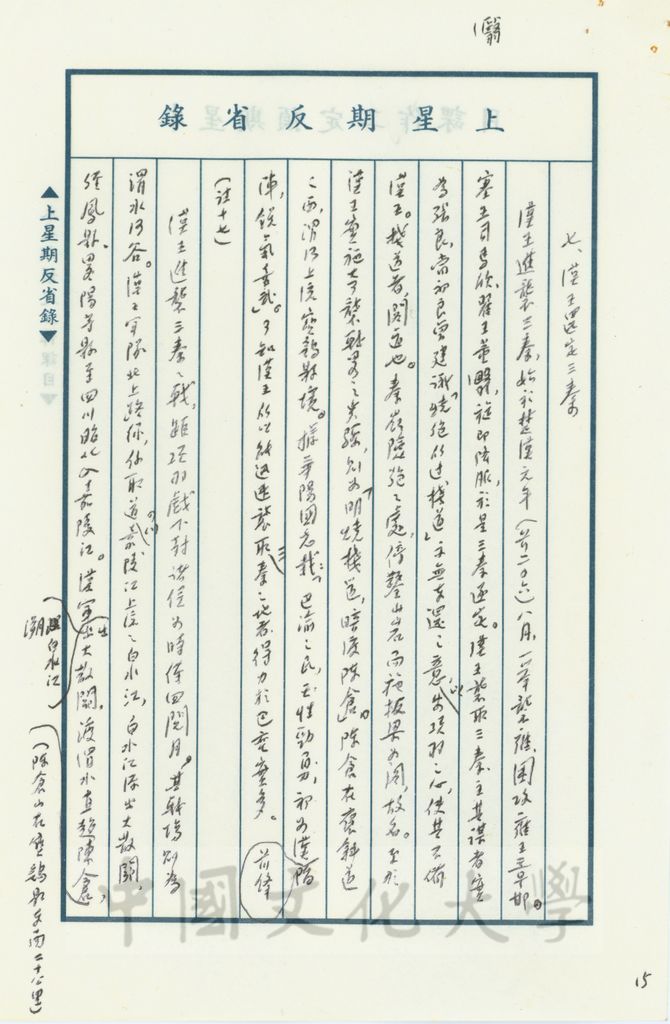 上星期反省錄
七、漢王還定三秦
漢王進襲三秦,始於楚漢元年(前二〇六)八月,一舉襲雍,圍攻雍王章邯。
塞王司馬欣、翟王董翳,旋即降服,於是三秦遂定。漢王襲取三秦,主其謀者實
為張良,當初良曾建議「燒絕所過棧道」,示無東還之意,以安項羽之心,使其不備
漢王。棧道者,閣道也。秦嶺險絕之處,傍鑿山岩而施板梁為閣,故名。至於
漢王實施奇襲戰略之步驟,則為「明燒棧道,暗渡陳倉」。陳倉在褒斜道
之西,渭河上流寶雞縣境。據華陽國志載:「巴渝之民,天性勁勇,初為漢前鋒
陣,銳氣喜舞」。可知漢王所以能迅速襲取三秦之地者,得力於巴賨實多。
(註十七)
漢王進襲三秦之戰,距項羽戲下封諸侯為時僅四閱月。其戰場則為
渭水河谷。漢王軍隊北上路線,係取道嘉陵江上流之白水江,白水江源出大散關,
經鳳縣、略陽等縣至四川昭化入嘉陵江。漢軍溯白水江出大散關,渡渭水直趨陳倉,
(陳倉山在寶雞縣東南二十公里)
▲上星期反省錄▼
15
中國文化大學